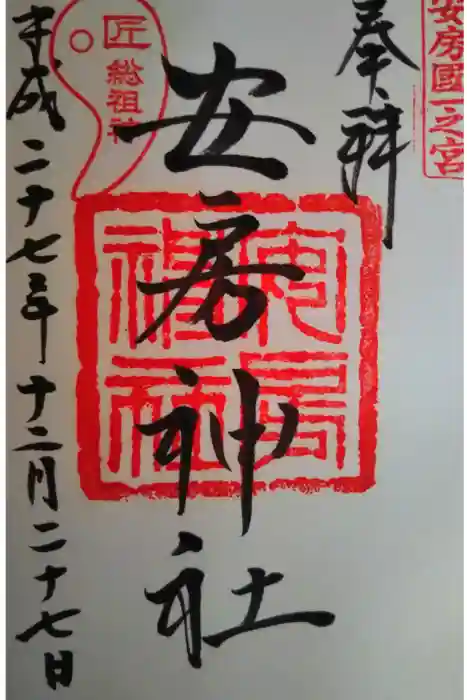 安房國一之宮
奉拝
安房神社
匠総祖神
平成二十七年十二月二十七日
安房神社